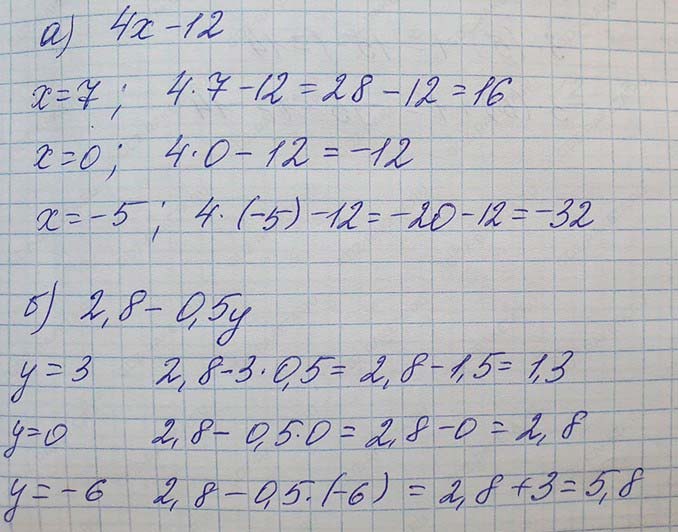 а) 4x - 12
x = 7; 4 · 7 - 12 = 28 - 12 = 16
x = 0; 4 · 0 - 12 = -12
x = -5; 4 · (-5) - 12 = -20 - 12 = -32
б) 2,8 - 0,5y
y = 3 2,8 - 3 · 0,5 = 2,8 - 1,5 = 1,3
y = 0 2,8 - 0,5 · 0 = 2,8 - 0 = 2,8
y = -6 2,8 - 0,5 · (-6) = 2,8 + 3 = 5,8